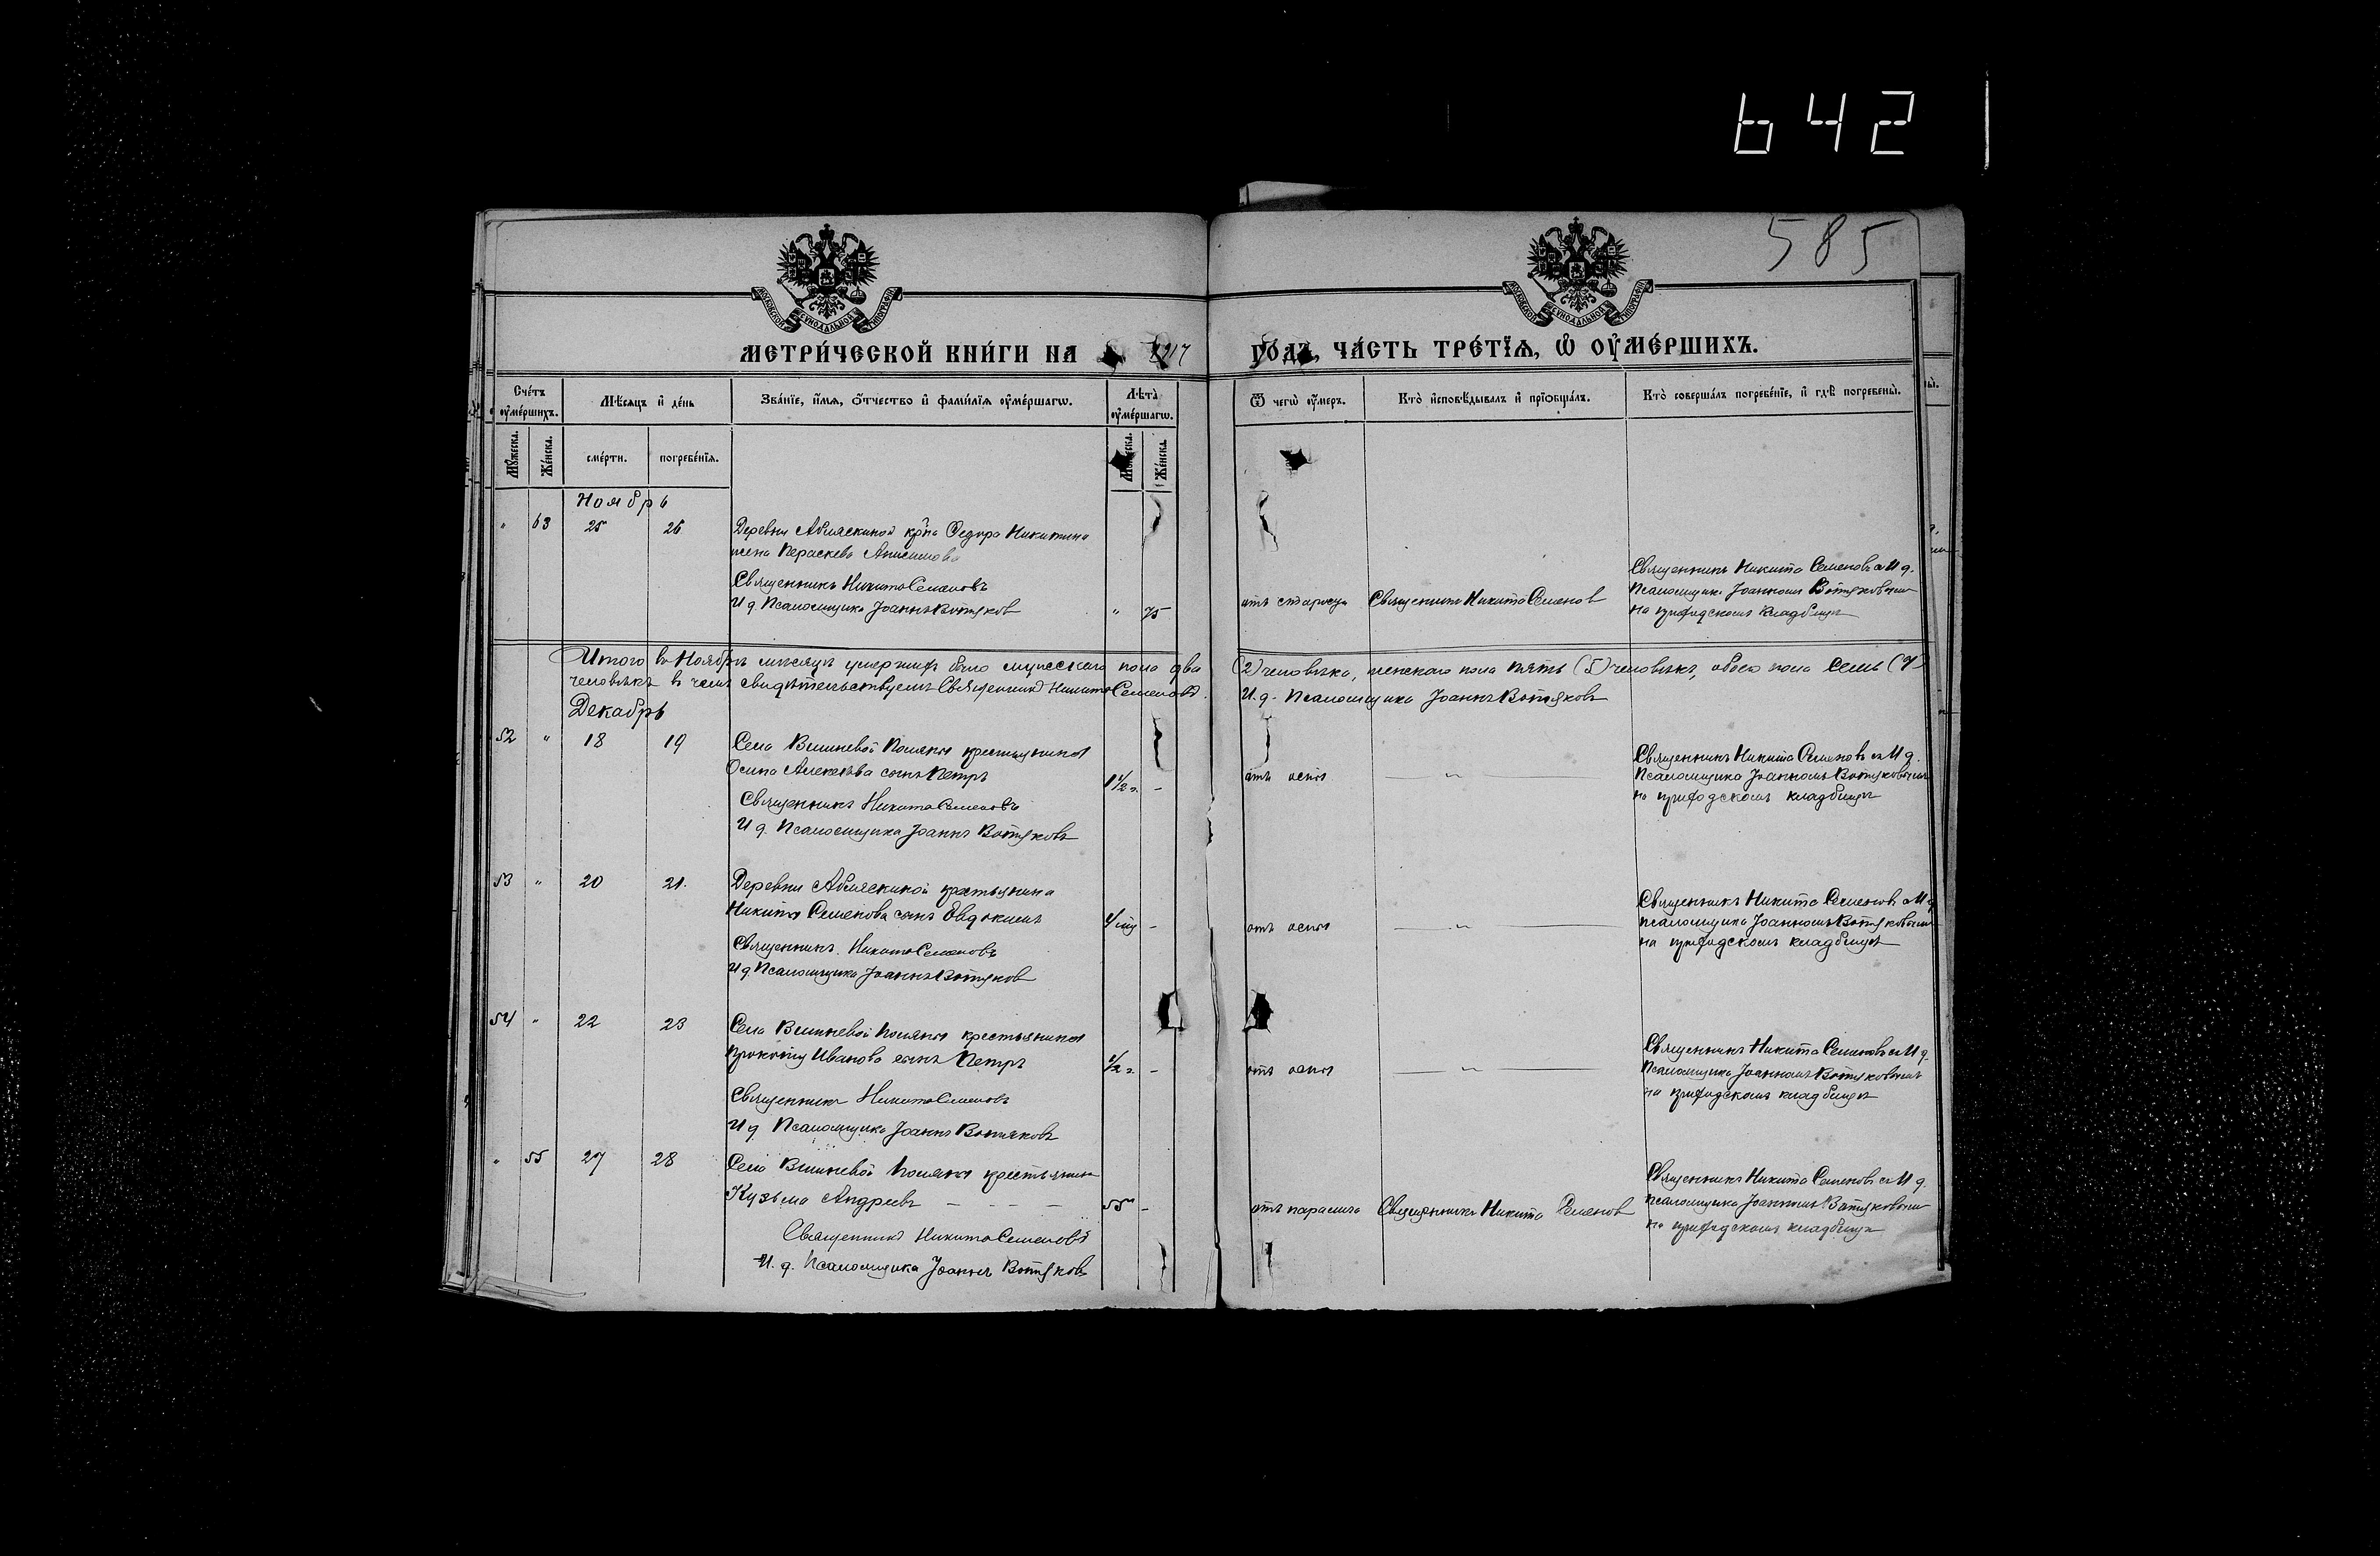 642
585
МОСКОВСКОЙ СУНОДАЛЬНОЙ ТИПОГРАФІИ
МОСКОВСКОЙ СУНОДАЛЬНОЙ ТИПОГРАФІИ
МЕТРИ́ЧЕСКОЙ КНИ́ГИ НА 1917 ГО́ДЪ, ЧА́СТЬ ТРЕ́ТЇѦ, Ѡ҆ ОУ҆МЕ́РШИХЪ.
Сче́тъ оу҆ме́ршихъ.
Мѣ́сяцъ и҆ де́нь
Зва́нїе, и҆́мя, ѻ҆́тчество и҆ фами́лїя оу҆ме́ршагѡ.
Лѣ́та оу҆ме́ршагѡ.
Ѿ чегѡ̀ оу҆́меръ.
Кто̀ и҆сповѣ́дывалъ и҆ прїѡбща́лъ.
Кто̀ соверша́лъ погребе́нїе, и҆ гдѣ̀ погребены̀.
Му́жеска.
Же́нска.
сме́рти.
погребе́нїя.
Му́жеска.
Же́нска.
Ноябрь
" 63 25 26 Деревни Абляскиной кр-на Федора Никитина
жена Параскева Анисимова
Священникъ Никита Семеновъ
И д Псаломщика Іоаннъ Вотяков " 75
отъ старости Священникъ Никита Семенов
Священникъ Никита Семеновъ съ И д.
Псаломщика Іоанномъ Вотяковымъ
на приходскомъ кладбищѣ
Итого въ Ноябрѣ мѣсяцѣ умершихъ было мужескаго пола два (2) человѣка, женскаго пола пять (5) человѣкъ, обоего пола семь (7)
человѣкъ въ чемъ свидѣтельствуемъ Священникъ Никита Семеновъ. И. д. Псаломщика Іоаннъ Вотяковъ
Декабрь
52 " 18 19 Села Вишневой Поляны крестьянина
Осипа Алексѣева сынъ Петръ 1 1/2 г. -
Священникъ Никита Семеновъ
И д. Псаломщика Іоаннъ Вотяковъ
отъ оспы — " —
Священникъ Никита Семеновъ съ И д.
Псаломщика Іоанномъ Вотяковымъ
на приходскомъ кладбищѣ
53 " 20 21. Деревни Абляскиной крестьянина
Никиты Семенова сынъ Евдокимъ -
Священникъ Никита Семеновъ
И д Псаломщика Іоаннъ Вотяков
отъ оспы — " —
Священникъ Никита Семеновъ съ И д
псаломщика Іоанномъ Вотяковымъ
на приходскомъ кладбищѣ
54 " 22 23 Села Вишневой Поляны крестьянина
Прокопія Иванова сынъ Петръ 1/2 г. -
Священникъ Никита Семеновъ
И д Псаломщика Іоаннъ Вотяковъ
отъ оспы — " —
Священникъ Никита Семеновъ съ И д.
Псаломщика Іоанномъ Вотяковымъ
на приходскомъ кладбищѣ
" 55 27 28 Села Вишневой Поляны крестьянин
Кузьма Андреевъ — — — — 55 -
Священникъ Никита Семеновъ
И. д. Псаломщика Іоаннъ Вотяковъ
отъ паралича Священникъ Никита Семенов
Священникъ Никита Семеновъ съ И д.
псаломщика Іоанномъ Вотяковымъ
на приходскомъ кладбищѣ